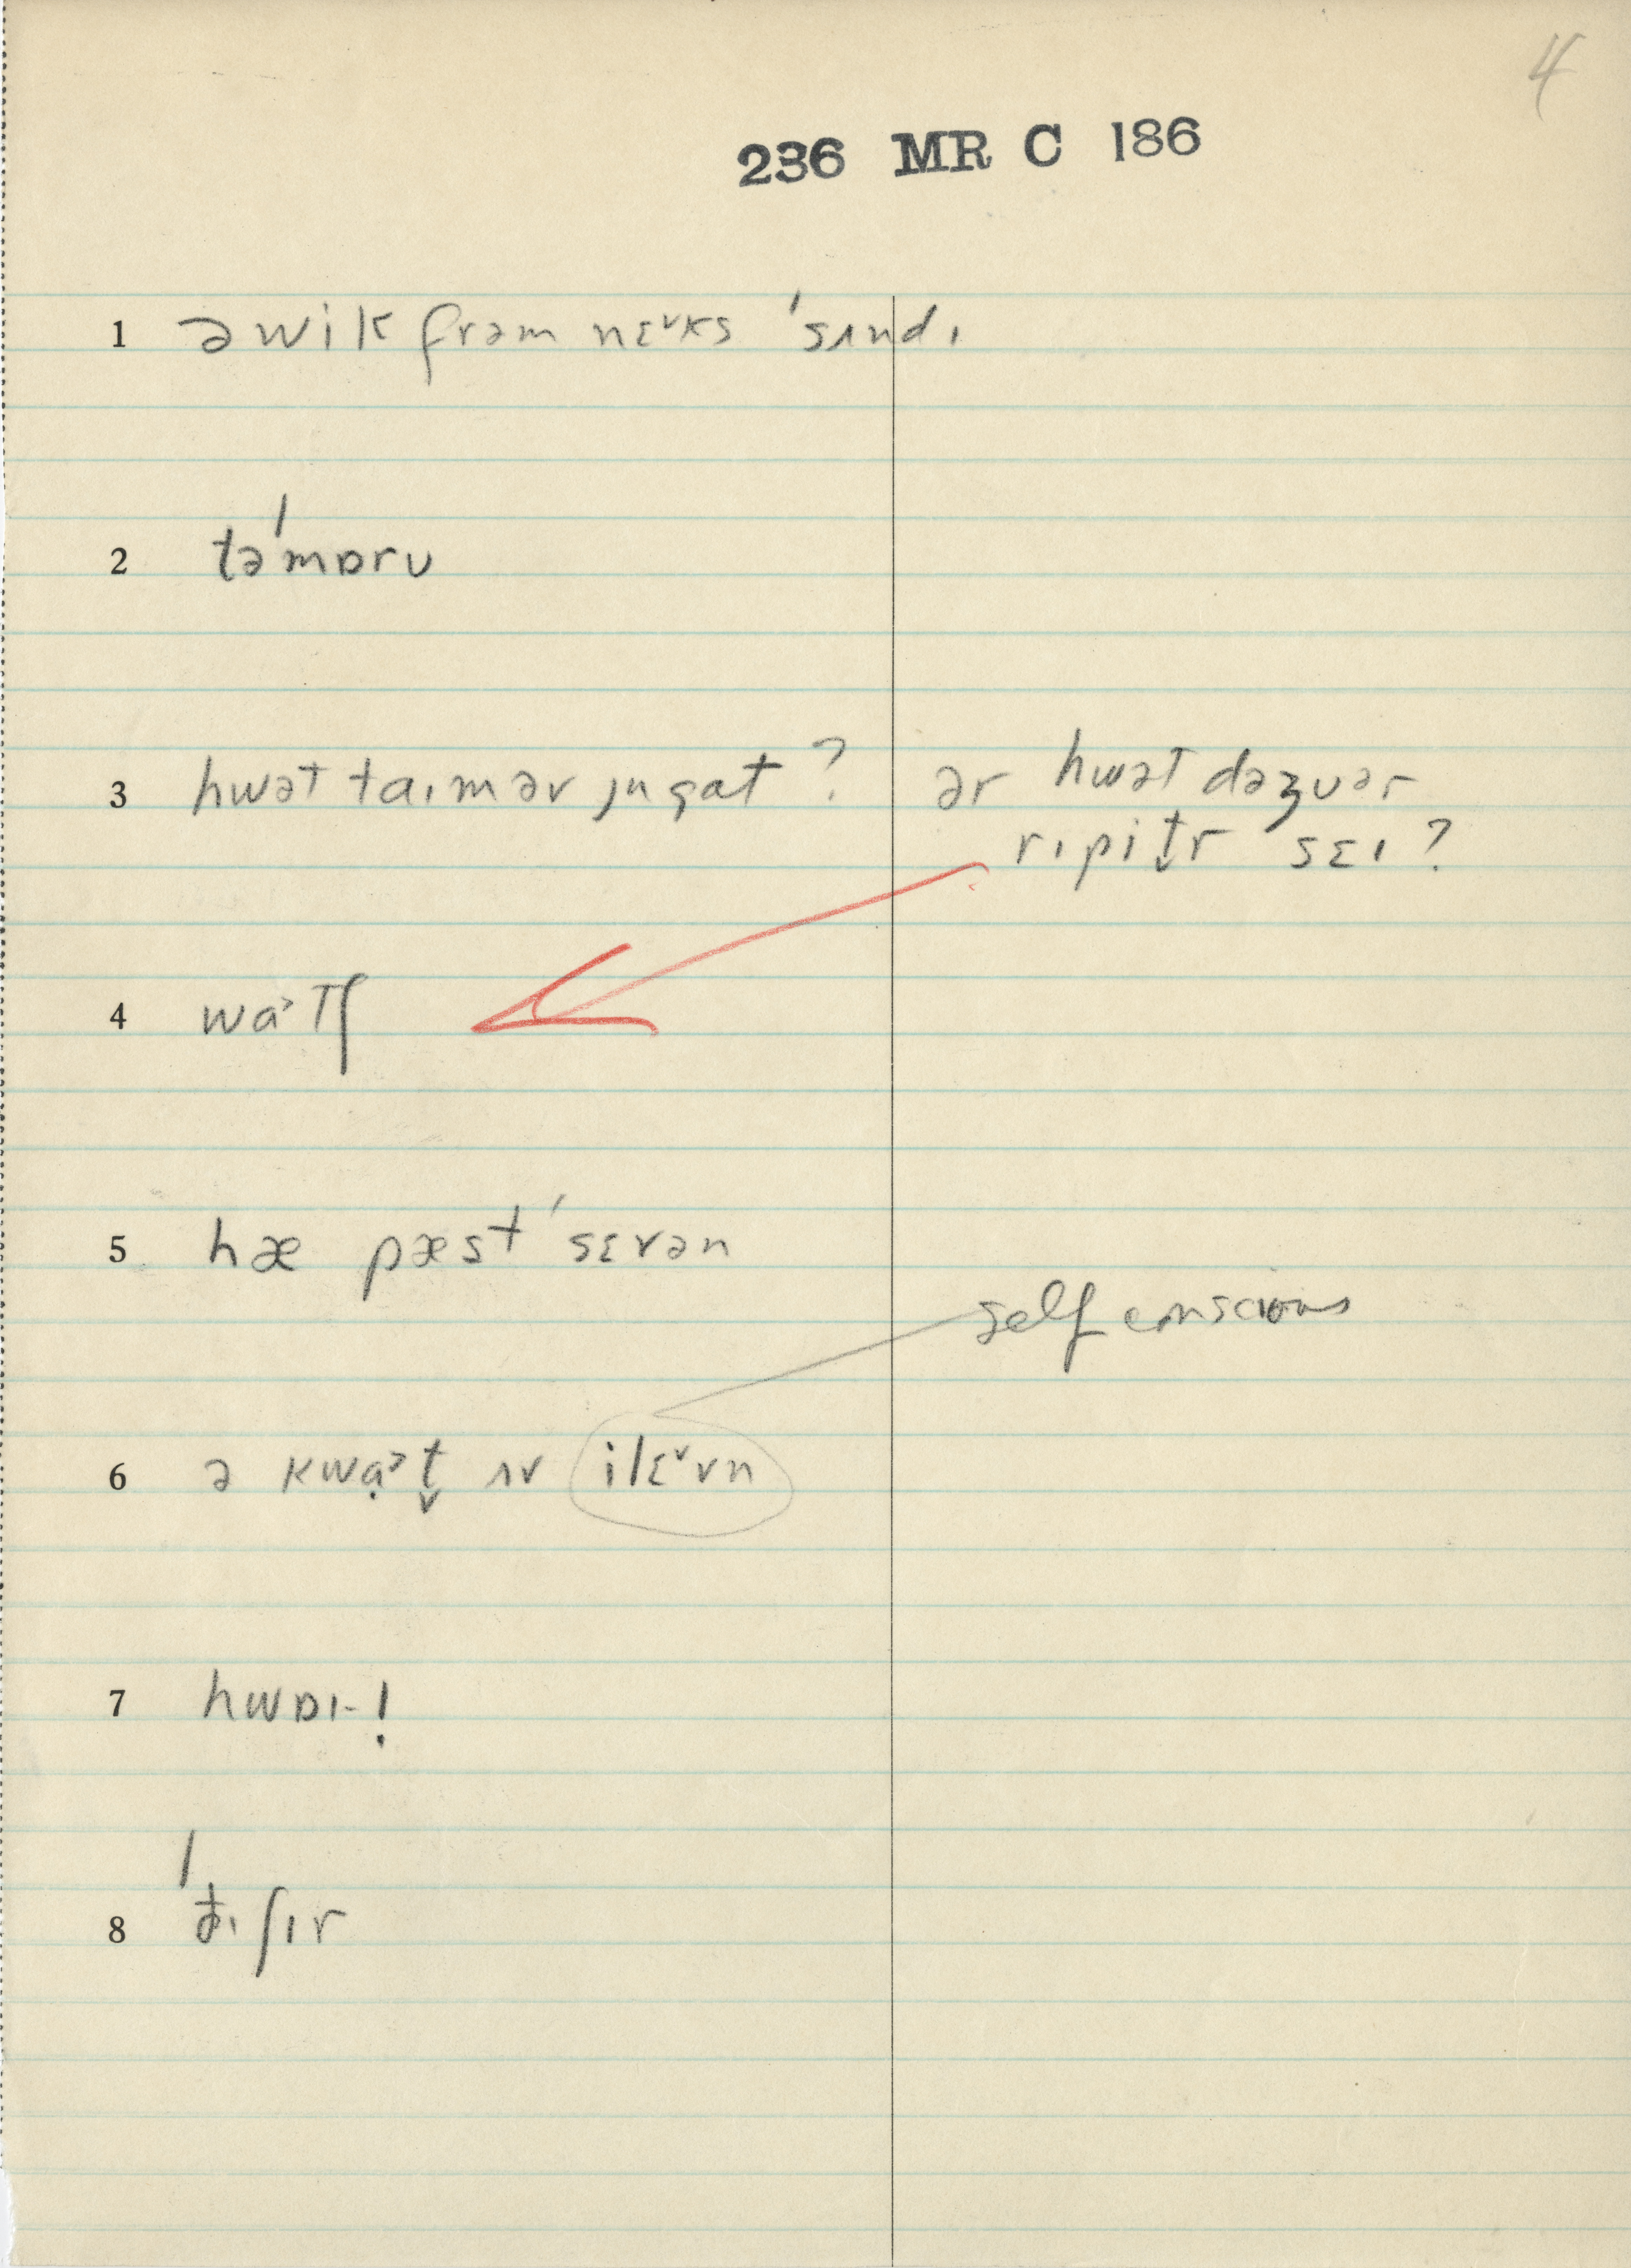 4
236 MR C 186
1 ə wik frəm nɛ˅ks ˈsʌndɪ
2 təˈmɒrʊ
3 hwət taɪm əv ju gat ? ər hwət dəz ʊər
rɪpit̬r sɛɪ ?
4 wa˃tʃ
5 hæ pæst ˈsɛvən
self conscious
6 ə kwạ˃t̬ ʌv ilɛ˅vn
7 hwɒɪ- !
8 ˈđɪ ʃɪr